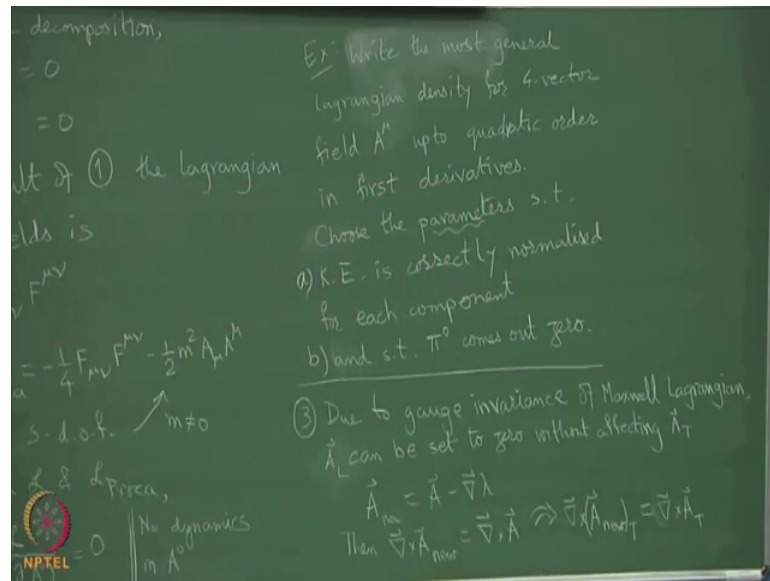 decomposition,
= 0
= 0
ult of ① the Lagrangian
elds is
F^{μν}
= -1/4 F_{μν} F^{μν} - 1/2 m² A_μ A^μ
s.d.o.f. m≠0
L & L_{Proca},
= 0 No dynamics
in A⁰
Ex: Write the most general
Lagrangian density for 4-vector
field A^μ upto quadratic order
in first derivatives.
Choose the parameters s.t.
a) K.E. is correctly normalised
for each component
b) and s.t. Π⁰ comes out zero.
③ Due to gauge invariance of Maxwell Lagrangian,
A⃗_L can be set to zero without affecting A⃗_T
A⃗_{new} = A⃗ - ∇⃗λ
Then ∇⃗×A⃗_{new} = ∇⃗×A⃗ ⇒ ∇⃗×(A⃗_{new})_T = ∇⃗×A⃗_T
NPTEL